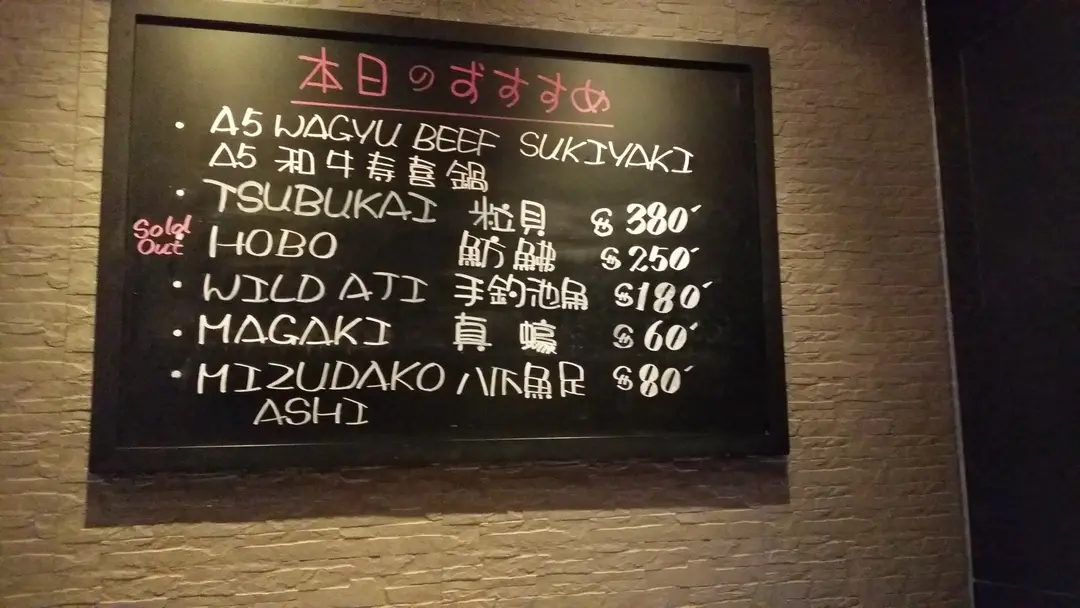 本日のずすすめ
• A5 WAGYU BEEF SUKIYAKI
A5 和牛寿喜鍋
• TSUBUKAI 粒貝 $380
Sold Out • HOBO 魴鮄 $250
• WILD AJI 手釣池魚 $180
• MAGAKI 真蠔 $60
• MIZUDAKO 八爪魚足 $80
ASHI